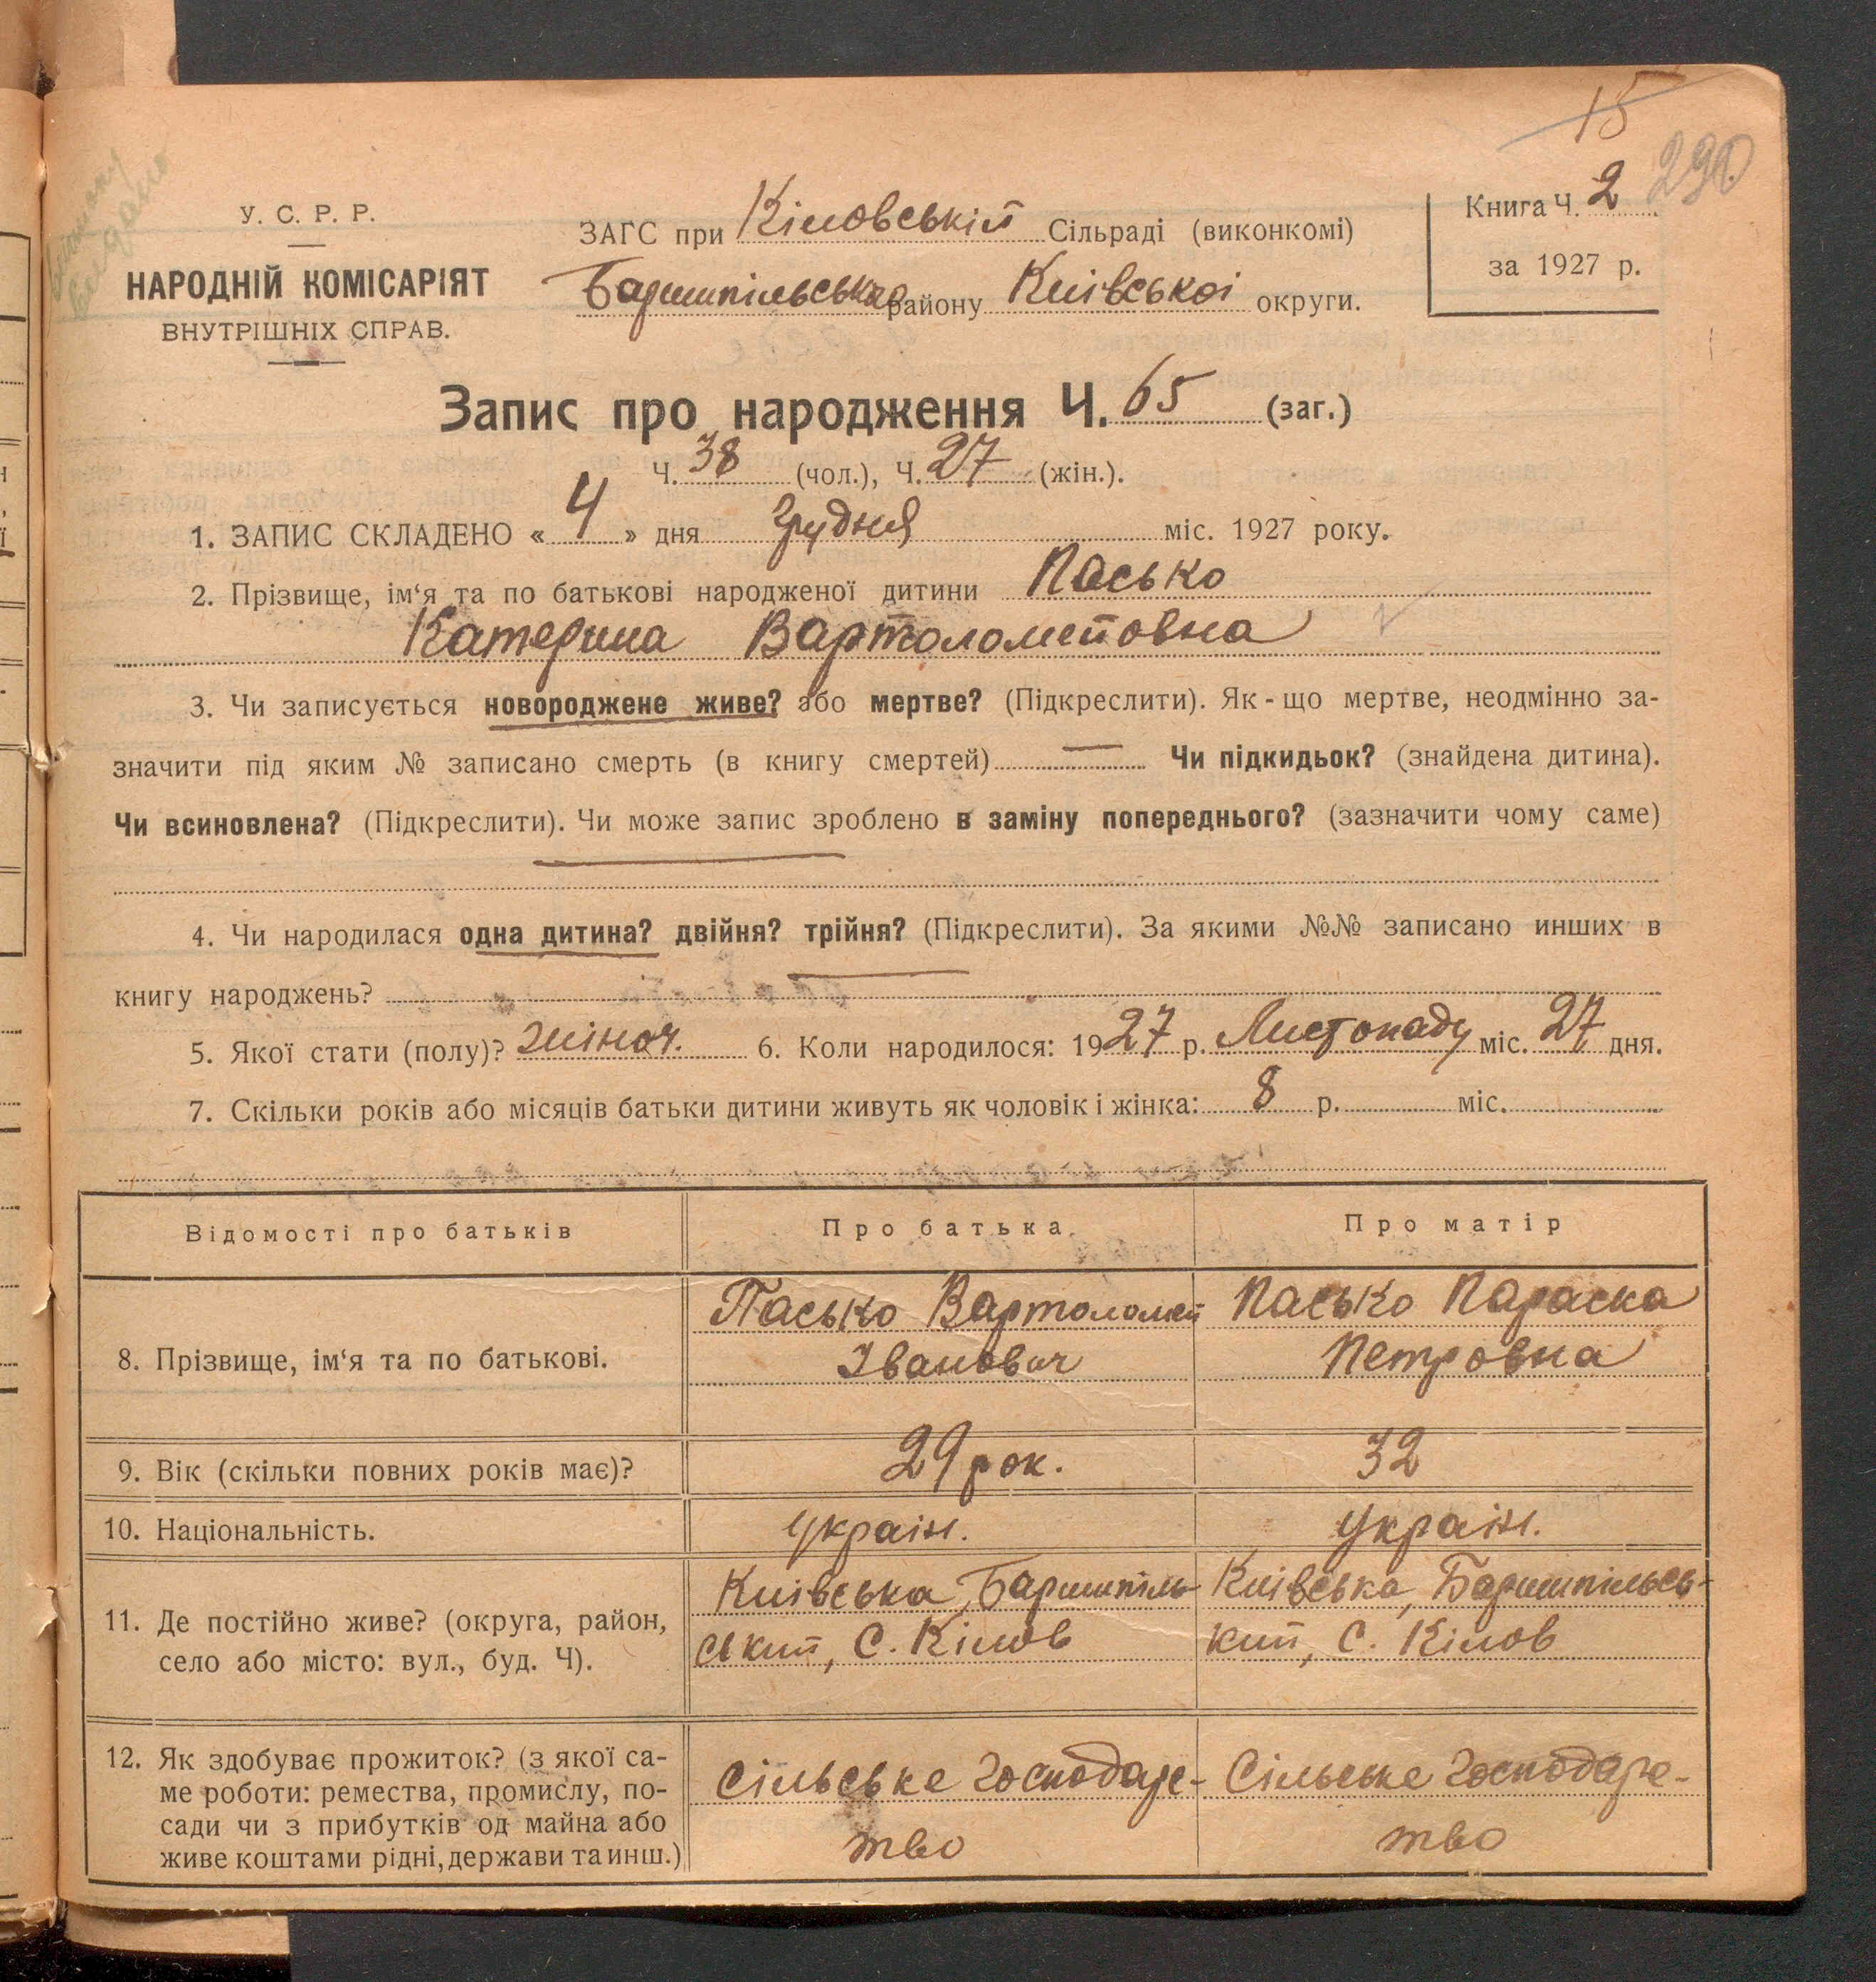 15
290
У. С. Р. Р.
НАРОДНІЙ КОМІСАРІЯТ
ВНУТРІШНІХ СПРАВ.
ЗАГС при Кіловській Сільраді (виконкомі)
Баришпільськаго району Київськоі округи.
Книга Ч. 2
за 1927 р.
Запис про народження Ч. 65 (заг.)
Ч. 38 (чол.), Ч. 27 (жін.).
1. ЗАПИС СКЛАДЕНО « 4 » дня Грудня міс. 1927 року.
2. Прізвище, ім‘я та по батькові народженої дитини Пасько
Катерина Вартоломейовна
3. Чи записується новороджене живе? або мертве? (Підкреслити). Як - що мертве, неодмінно за-
значити під яким № записано смерть (в книгу смертей) — Чи підкидьок? (знайдена дитина).
Чи всиновлена? (Підкреслити). Чи може запис зроблено в заміну попереднього? (зазначити чому саме)
4. Чи народилася одна дитина? двійня? трійня? (Підкреслити). За якими №№ записано инших в
книгу народжень?
5. Якої стати (полу)? жіноч. 6. Коли народилося: 1927 р. Листопаду міс. 27 дня.
7. Скільки років або місяців батьки дитини живуть як чоловік і жінка: 8 р. міс.
Відомості про батьків Про батька Про матір
8. Прізвище, ім‘я та по батькові.
Пасько Вартоломей
Іванович
Пасько Параска
Петровна
9. Вік (скільки повних років має)? 29 рок. 32
10. Національність. Украін. Украін.
11. Де постійно живе? (округа, район,
село або місто: вул., буд. Ч).
Київська, Баришпіль-
ський, С. Кілов
Київська, Баришпільсь-
кий, С. Кілов
12. Як здобуває прожиток? (з якої са-
ме роботи: ремества, промислу, по-
сади чи з прибутків од майна або
живе коштами рідні, держави та инш.)
Сільське господарс-
тво
Сільське господарс-
тво